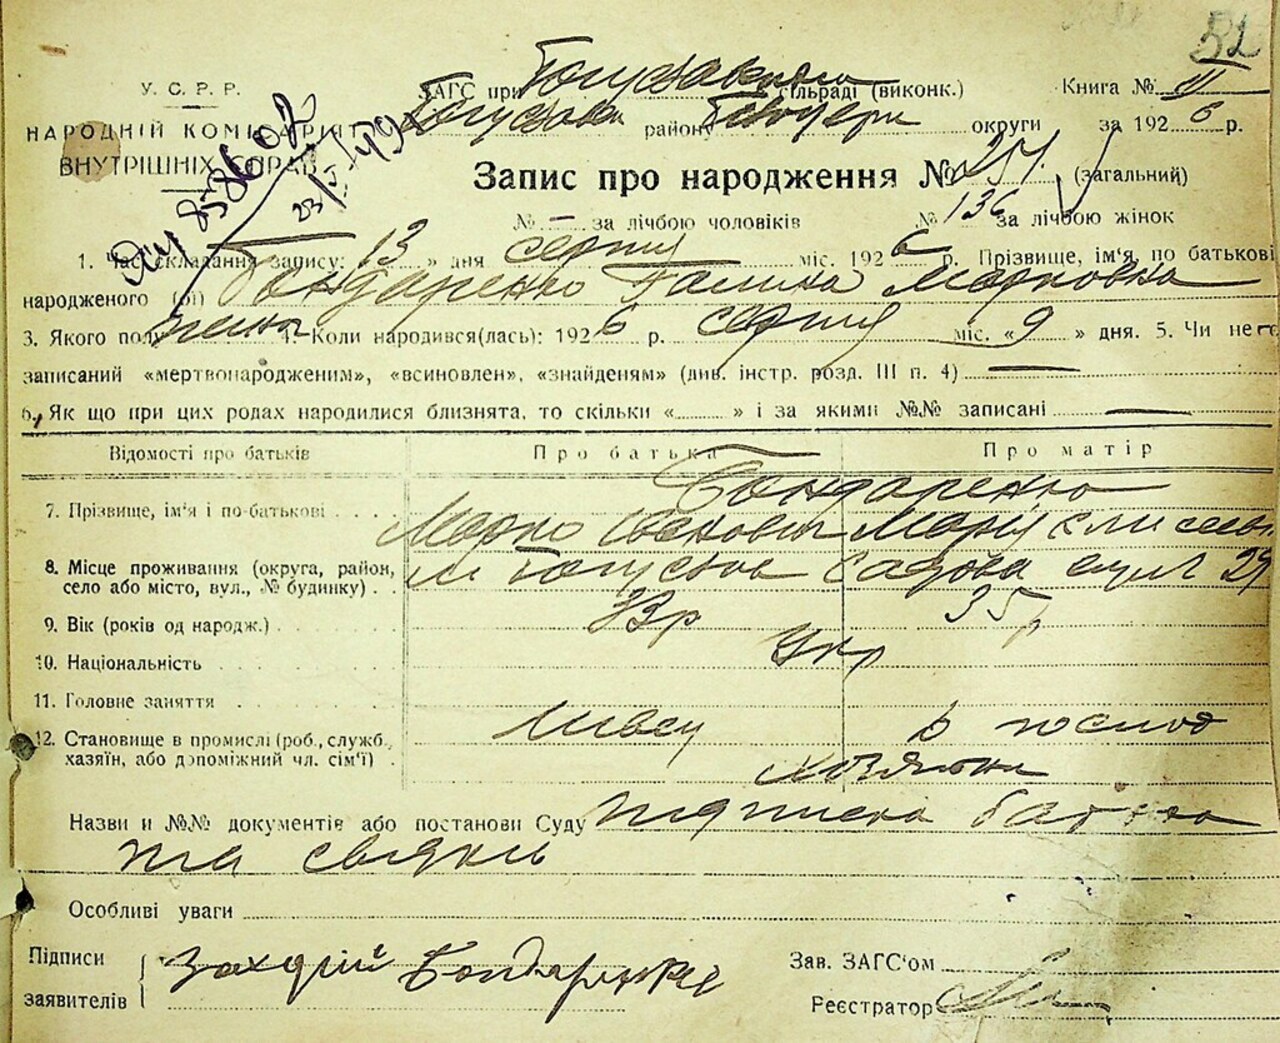 52
У. С. Р. Р.
НАРОДНІЙ КОМІСАРІЯТ
ВНУТРІШНІХ СПРАВ
858607
23/I 49
ЗАГС при сільраді (виконк.)
району округи
Книга № III
за 1926 р.
Запис про народження № 257. (загальний)
№ — за лічбою чоловіків № 136 за лічбою жінок
1. Час складання запису: 13 » дня серпня міс. 1926 р. Прізвище, ім'я, по батькові
народженого (ої) Бондаренко Галина Марковна
3. Якого полу жіноч 4. Коли народився(лась): 1926 р. серпня міс. «9» дня. 5. Чи не є
записаний «мертвонародженим», «всиновлен», «знайденям» (див. інстр. розд. III п. 4) —
6. Як що при цих родах народилися близнята, то скільки « » і за якими №№ записані —
Відомості про батьків Про батька Про матір
Бондаренко
7. Прізвище, ім'я і по-батькові Марко Марія
8. Місце проживання (округа, район, село або місто, вул., № будинку) м Богуслав Садова 29
9. Вік (років од народж.) 35 р
10. Національність Укр
11. Головне заняття
12. Становище в промислі (роб., служб., хазяїн, або допоміжний чл. сім'ї) швець
Назви и №№ документів або постанови Суду підписка батька
та свідків
Особливі уваги
Підписи заявителів Бондаренко
Зав. ЗАГС'ом
Реєстратор